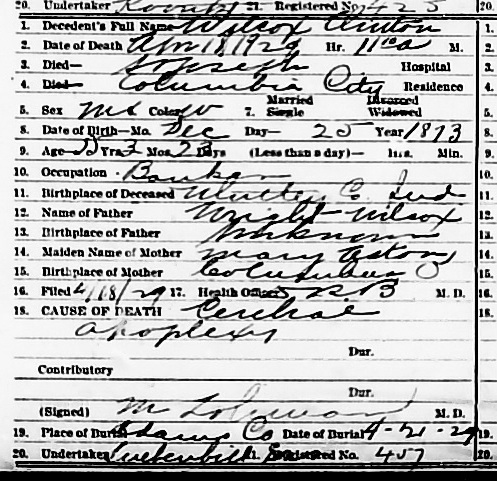 20. Undertaker 21. Registered No. 425
1. Decedent's Full Name Wilcox Clinton
2. Date of Death Apr 18 1929 Hr. 11 a M.
3. Died— St Joseph Hospital
4. Died— Columbia City Residence
5. Sex M 6. Color W 7. Married Single Divorced Widowed
8. Date of Birth—Mo. Dec Day— 25 Year 1873
9. Age— 55 Yrs 3 Mos. 23 Days (Less than a day)— Hrs. Min.
10. Occupation Banker
11. Birthplace of Deceased Whitley Co. Ind
12. Name of Father Wright Wilcox
13. Birthplace of Father Unknown
14. Maiden Name of Mother Mary
15. Birthplace of Mother Columbus O
16. Filed 4/18/29 17. Health Officer B M. D.
18. CAUSE OF DEATH Cerebral
apoplexy
Dur.
Contributory
Dur.
(Signed) M. D.
19. Place of Burial Adams Co Date of Burial 4-21-29
20. Undertaker 21. Registered No. 457